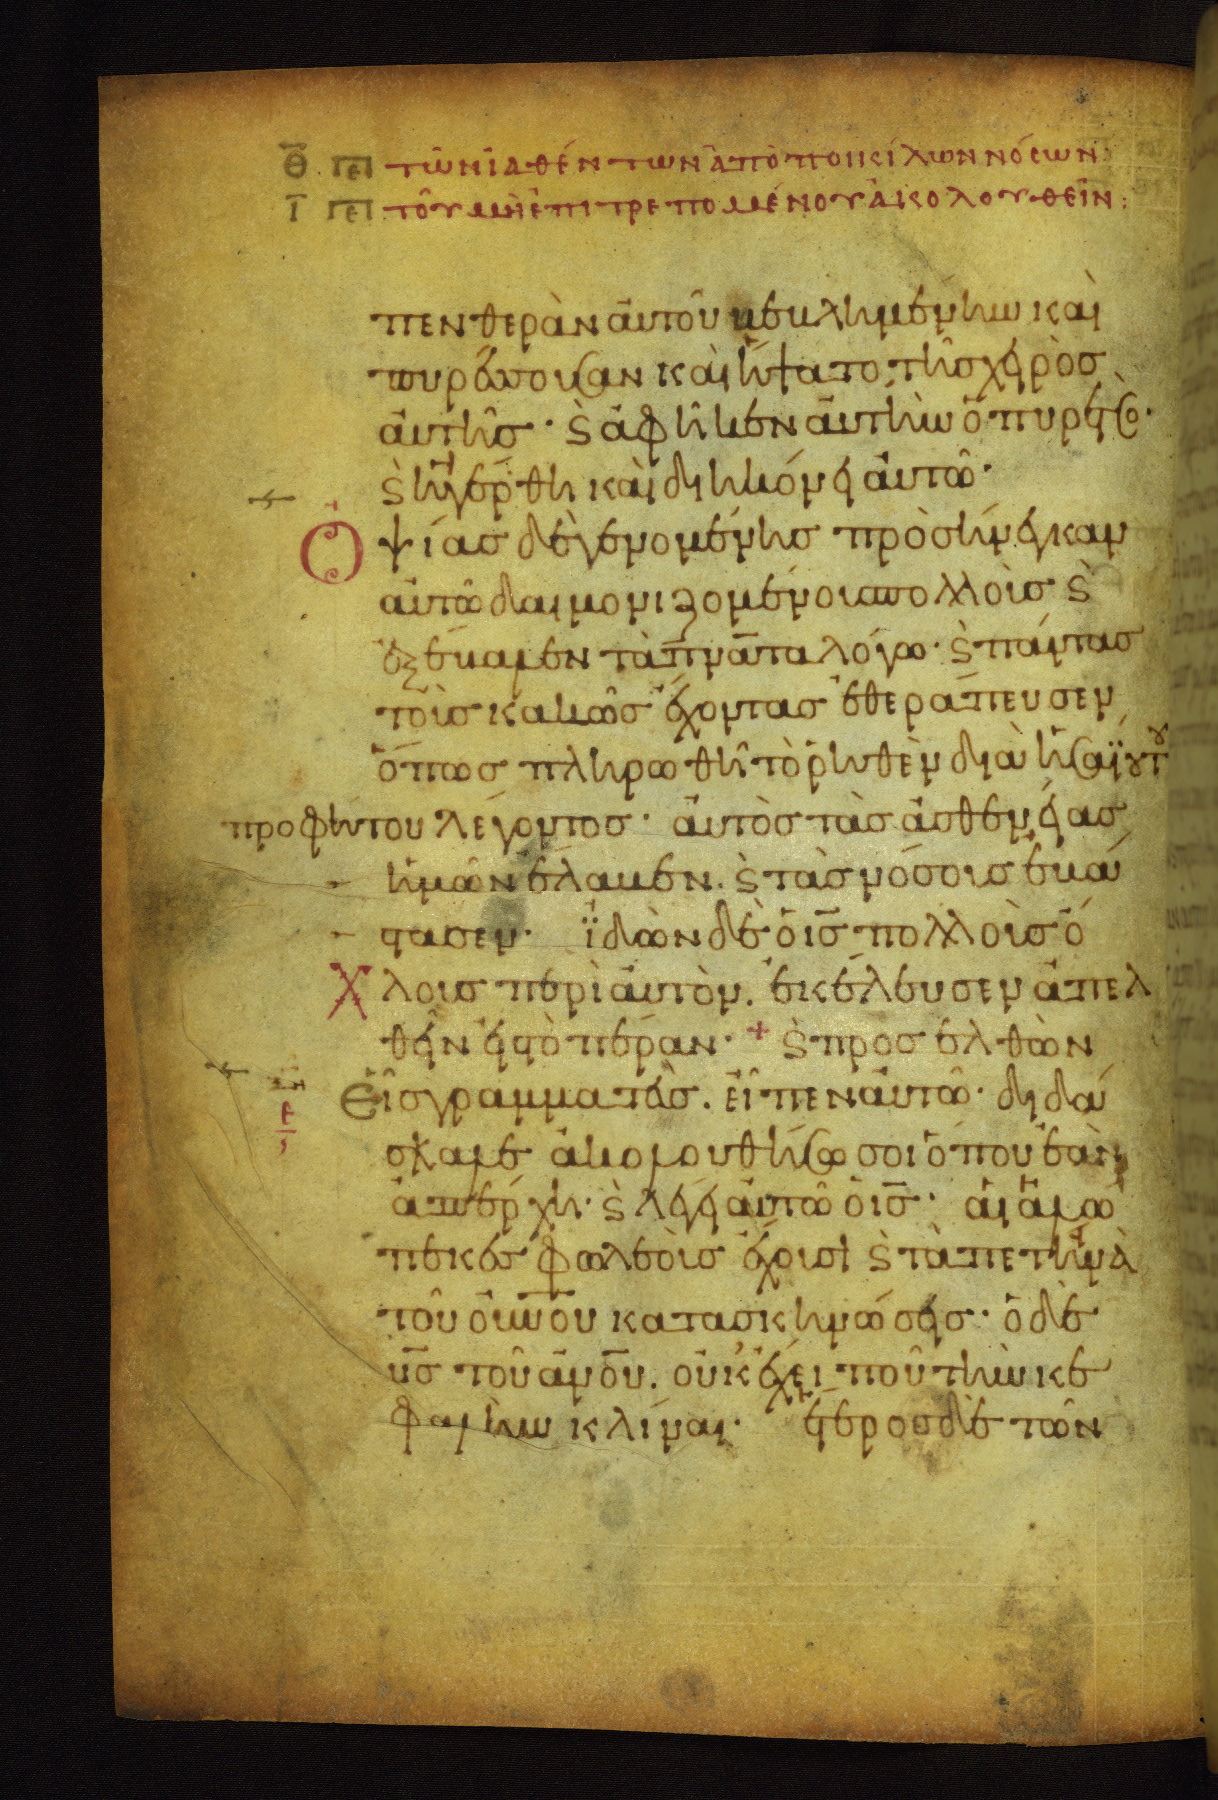 Θ πε τῶν ἰαθέντων ἀπὸ ποικίλων νόσων
Ι πε τοῦ μὴ ἐπιτρεπομένου ἀκολουθεῖν:
πενθερὰν αὐτοῦ βεβλημένην καὶ
πυρέσσουσαν καὶ ἥψατο τῆς χειρὸς
αὐτῆς· ϗ ἀφῆκεν αὐτὴν ὁ πυρετός·
ϗ ἠγέρθη καὶ διηκόνει αὐτῶ·
Ὀψίας δὲ γενομένης προσήνεγκαν
αὐτῶ δαιμονιζομένους πολλοὺς ϗ
ἐξέβαλεν τὰ πν̅ατα λόγω· ϗ πάντας
τοὺς κακῶς ἔχοντας ἐθεράπευσεν
ὅπως πληρωθῆ τὸ ῥηθὲν διὰ ἡσαΐου τοῦ
προφήτου λέγοντος· αὐτὸς τὰς ἀσθενείας
ἡμῶν ἔλαβεν. ϗ τὰς νόσους ἐβά
στασεν· ἰδὼν δὲ ὁ ι̅ς̅ πολλοὺς ὄ
χλους περὶ αὐτὸν. ἐκέλευσεν ἀπελ
θεῖν εἰς τὸ πέραν· + ϗ προσελθὼν
εἷς γραμματεὺς. εἶπεν αὐτῶ· διδά
σκαλε ἀκολουθήσω σοι ὅπου ἐὰν
ἀπέρχη· ϗ λέγει αὐτῶ ὁ ι̅ς̅· αἱ ἀλώ
πεκες φωλεοὺς ἔχουσι ϗ τὰ πετεινὰ
τοῦ ου̅νου κατασκηνώσεις· ὁ δὲ
υ̅ς̅ τοῦ α̅νου. οὐκ ἔχει ποῦ τὴν κε
φαλὴν κλίναι· ἕτερος δὲ τῶν